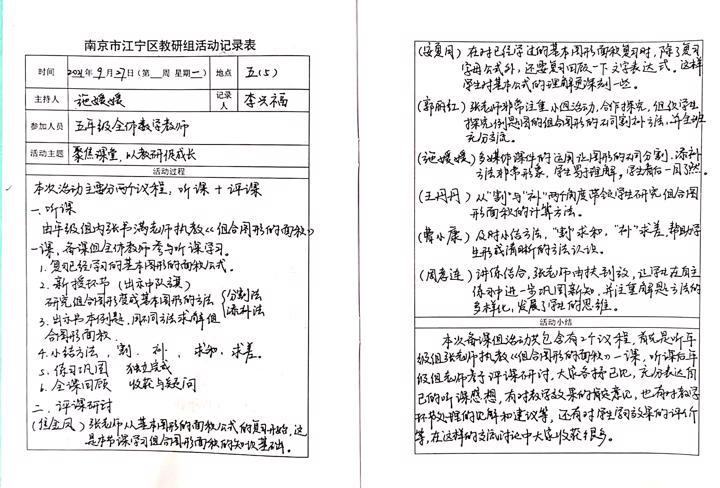 南京市江宁区教研组活动记录表
时间 2021年9月27日(第 周 星期一) 地点 五(5)
主持人 施媛媛 记录人 李兴福
参加人员 五年级全体数学教师
活动主题 聚焦课堂,以教研促成长
活动过程
本次活动主要分两个议程:听课+评课
一、听课
由年级组内张书满老师执教《组合图形的面积》
一课,备课组全体教师参与听课学习。
1.复习已经学习的基本图形的面积公式。
2.新授环节(出示中队旗)
研究组合图形变成基本图形的方法 分割法 添补法
3.出示书本例题,用不同方法求解组
合图形面积
4.小结方法,割、补、求和、求差。
5.练习巩固 独立完成
6.全课回顾 收获与疑问
二、评课研讨
张老师从基本图形的面积公式的复习开始,这
是本节课学习组合图形面积的知识基础。
在对已经学过的基本图形面积复习时,除了复习
字母公式外,还要复习回顾一下文字表达式。这样
学生对基本公式的理解更深刻一些。
(郭丽红)张老师非常注重小组活动,合作探究,组织学生
探究例题图的组合图形的不同割补方法,并全班
充分交流。
(施媛媛)多媒体课件的运用让图形的不同分割、添补
方法非常形象,学生易于理解,学生看后一目了然。
(王丹丹)从“割”与“补”两个角度带领学生研究组合图
形面积的计算方法。
(曹小康)及时小结方法,“割”求和,“补”求差,帮助学
生形成清晰的方法认识。
讲练结合,张老师由扶到放,让学生在自主
练习中进一步巩固新知,并注重解题方法的
多样化,发展了学生的思维。
活动小结
本次备课组活动共包含有2个议程,首先是听年
级组张老师执教《组合图形的面积》一课,听课后年
级组老师参于评课研讨。大家各抒己见,充分表达自
己的听课感想,有对教学效果的肯定意见,也有对教学
环节处理的见解和建议等,还有对学生学习效果的评价
等,在这样的交流讨论中大家收获很多。